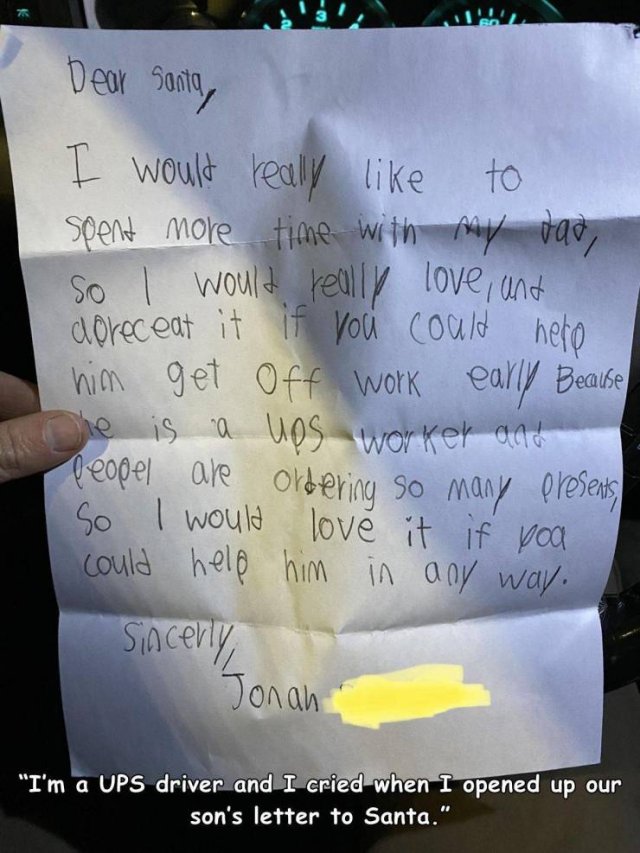 2 3 60
Dear Santa,
I would really like to
spend more time with my dad,
so I would really love, and
apreceat it if you could help
him get off work early Because
he is a ups worker and
peopel are ordering so many presents,
So I would love it if you
could help him in any way.
Sincerly,
Jonah
"I'm a UPS driver and I cried when I opened up our
son's letter to Santa."